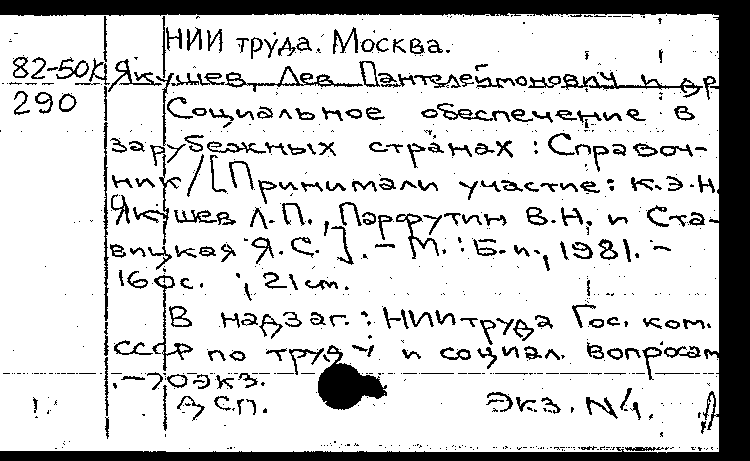 НИИ труда. Москва.
82-50К Якушев, Лев Пантелеймонович и др
290 Социальное обеспечение в
зарубежных странах : Справоч-
ник / [Принимали участие : к.э.н.
Якушев Л.П., Парфутин В.Н. и Ста-
вицкая Я.С.]. - М. : Б.и., 1981. -
160с. ; 21 см.
В надзаг. : НИИ труда Гос. ком.
СССР по труду и социал. вопросам
. - 70 экз.
ДСП. Экз. N4.